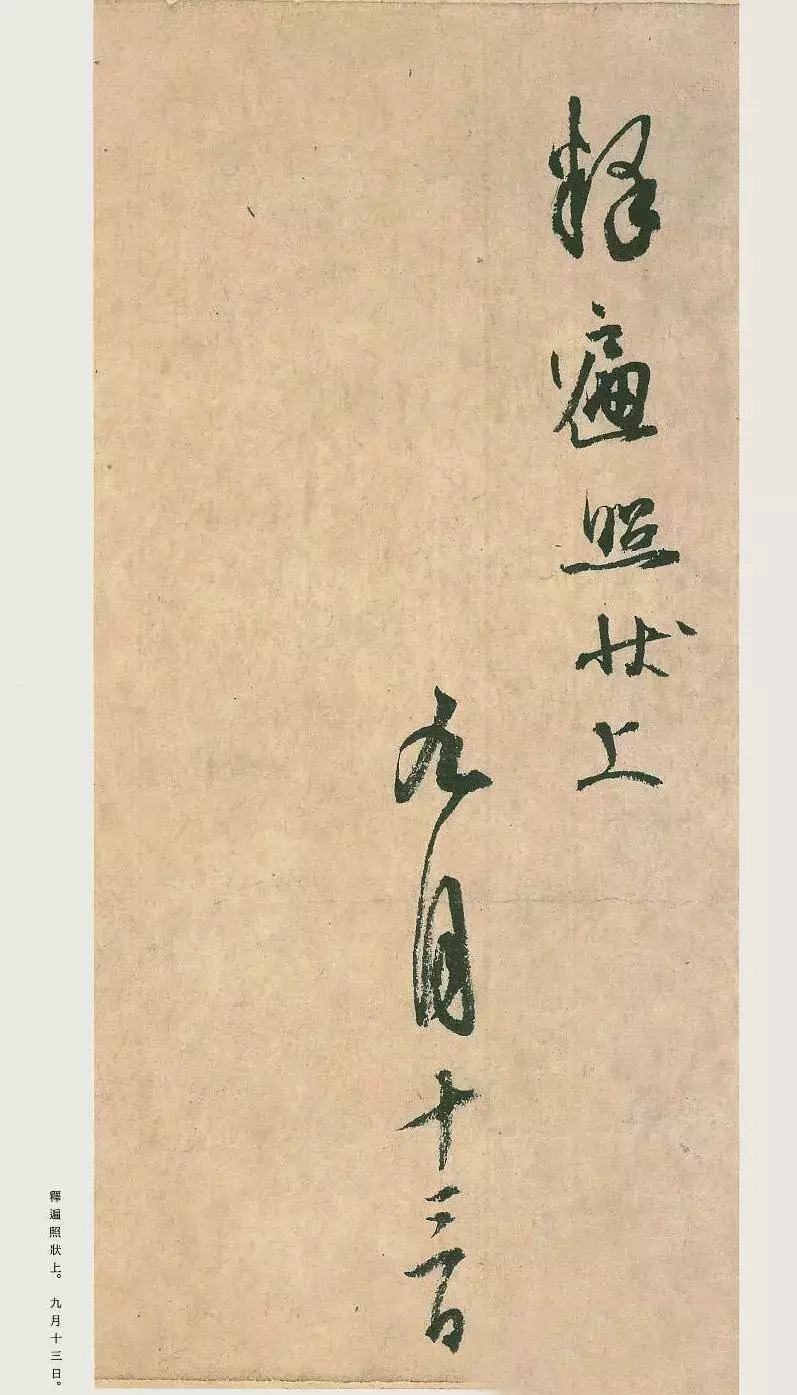 释遍照状上
九月十三日
釋遍照狀上。九月十三日。